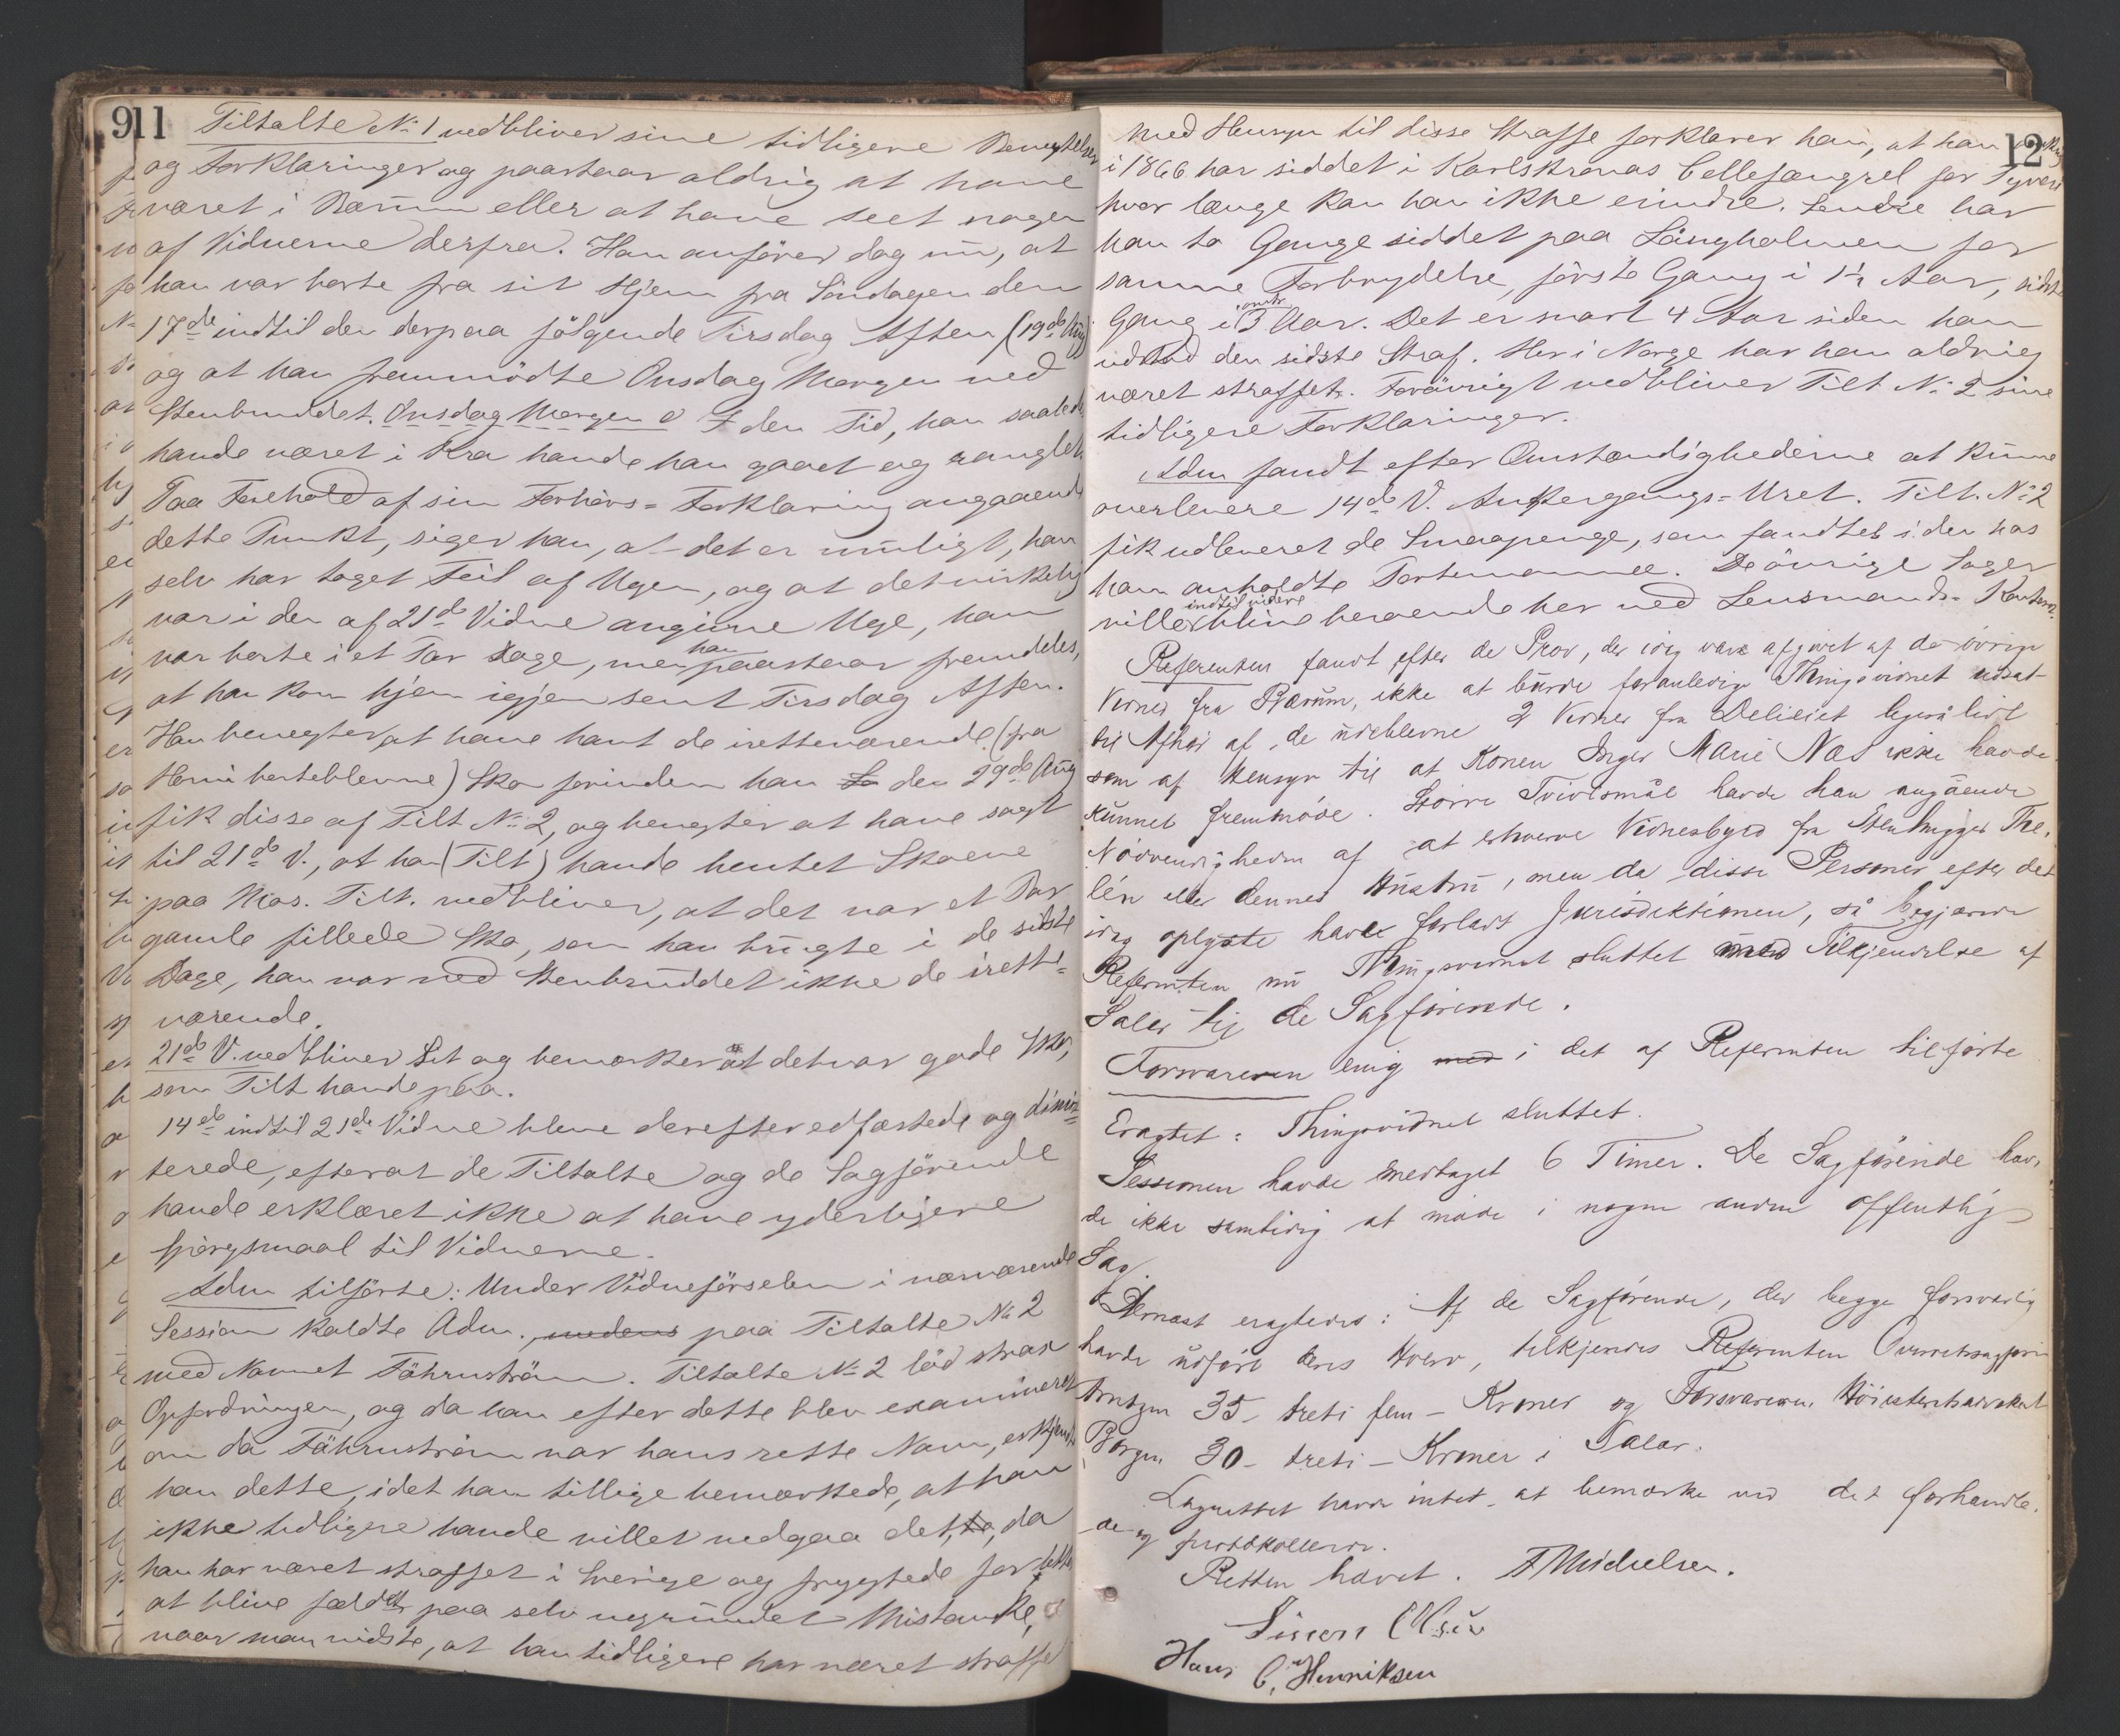 911
Tiltalte No 1 vedbliver sine tidligere Benegtelser
og Forklaringer og paastaar aldrig at have
været i Bærum eller at have seet nogen
af Vidnerne derfra. Han anfører dog nu, at
han var borte fra sit Hjem fra Söndagen den
17de indtil den derpaa fölgende Tirsdag Aften (19de Aug)
og at han fremmödte Onsdag Morgen ved
Stenbruddet. Onsdag Morgen I den Tid, han saaledes
havde været i Kra havde han gaaet og ranglet.
Paa Forehold af sin Forhörs=Forklaring angaaende
dette Punkt, siger han, at det er muligt, han
selv har taget Feil af Ugen, og at det virkelig
var i den af 21de Vidne angivne Uge, han
var borte i et Par Dage, men han paastaar fremdeles,
at han kom hjem igjen sent Tirsdag Aften.
Han benegter at have havt de iretteværende (fra
Horni bortblevne) Sko forinden han den 29de Aug
fik disse af Tilt No 2, og benegter at have sagt
til 21de V., at han (Tilt) havde hentet Skoene
paa Mos. Tilt. vedbliver, at det var et Par
gamle fillede Sko, som han brugte i de sidste
Dage, han var ved Stenbruddet ikke de irette=
værende.
21de V. vedbliver Sit og bemærker at det var gode Sko,
som Tilt havde paa.
14de indtil 21de Vidne bleve derefter edfæstede og dimit=
terede, efterat de Tiltalte og de Sagförende
havde erklæret ikke at have yderligere
Spörgsmaal til Vidnerne.
Adm tilförte: Under Vidneförselen i nærværende
Session kaldte Adm., medens paa Tiltalte No 2
med Navnet Fährnström. Tiltalte No 2 löd strax
Opfordringen, og da han efter dette blev examineret
om da Fährnström var hans rette Navn, erkjendte
han dette, idet han tillige bemærkede, at han
ikke tidligere havde villet vedgaa det, da
han har været straffet i Sverige og frygtede for
at blive fældet paa selv ugrundet Mistanke,
naar man vidste, at han tidligere har været straffet
12
Med Hensyn til disse Straffe forklarer han, at han
i 1866 har siddet i Karlskronas Cellefængsel for Tyveri
hvor længe kan han ikke erindre. Senere har
han to Gange siddet paa Långholmen for
samme Forbrydelse, förste Gang i 1½ Aar, sidste
Gang i omtr 3 Aar. Det er snart 4 Aar siden han
udstod den sidste Straf. Her i Norge har han aldrig
været straffet. Forövrigt vedbliver Tilt No 2 sine
tidligere Forklaringer.
Adm fandt efter Omstændighederne at kunne
overlevere 14de V. Ankergangs=Uret. Tilt. No 2
fik udleveret de Smaapenge, som fandtes i den hos
ham anholdte Portemonnæe. De övrige Sager
ville indtil videre blive beroende her ved Lensmands=Kontoret.
Referenten fandt efter de Prov, der idag vare afgivet af de övrige
Vidner fra Bærum, ikke at burde foranledige Thingsvidnet udsat
til Afhör af de udeblevne 2 Vidner fra Delictet ligesålidt
som af Hensyn til at Konen Inger Marie Næs ikke havde
kunnet fremmöde. Större Tvivlsmål havde han angående
Nödvendigheden af at erhverve Vidnesbyrd fra Stenhugger The-
lén eller dennes Hustru, men da disse Personer efter det
idag oplyste have forladt Jurisdiktionen, så begjærede
Referenten nu Thingsvidnet sluttet med Tilkjendelse af
Salær til de Sagförende.
Forsvareren enig med i det af Referenten tilförte
Eragtet: Thingsvidnet sluttet.
Sessionen havde medtaget 6 Timer. De Sagförende hav-
de ikke samtidig at möde i nogen anden offentlig
Sag.
Dernæst eragtedes: At de Sagförende, der begge forsvarlig
havde udfört deres Hverv, tilkjendes Referenten Overretssagförer
Arntzen 35 - treti fem - Kroner og Forsvareren, Höiesteretsadvokat
Borgen 30 - treti - Kroner i Salær.
Lagrettet havde intet at bemærke ved det forhandle-
de og protokollerede.
Retten hævet. F Michelsen.
Simen Olsen
Hans C. Henriksen